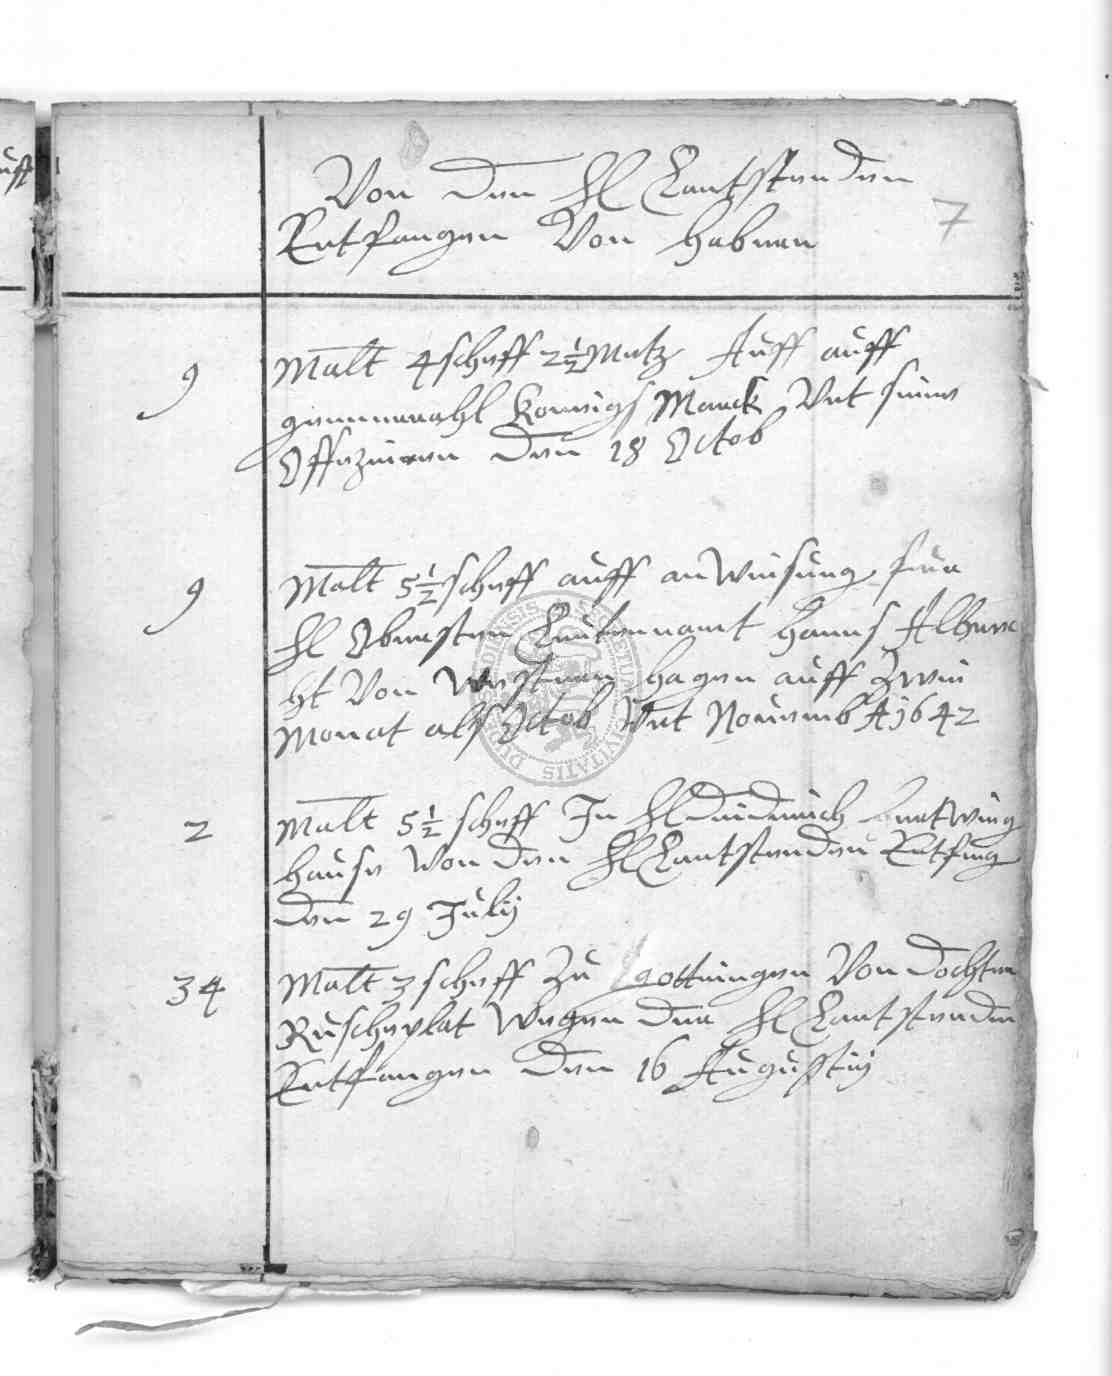 Von den Hl Lantstenden
7
Entfangen Von habern
9 Malt 4 scheff 2½ Metz Auff
Konnigs Marck Vnt seine
Offezieren den 18 Octob
9 Malt 5½ scheff auff anWeisung
Hl Obersten Leutennamt Hanns Albre
ht Von hagen auff Zwei
Monat als Octob Vnt Nouemb A 1642
2 Malt 5½ scheff In Hl
hause Von den Hl Lantstenden Entfing
den 29 Julij
34 Malt 3 scheff Zu Gottingen Von
Ruscheplat Wegen der Hl Lantstenden
Entfangen den 16 Augustij